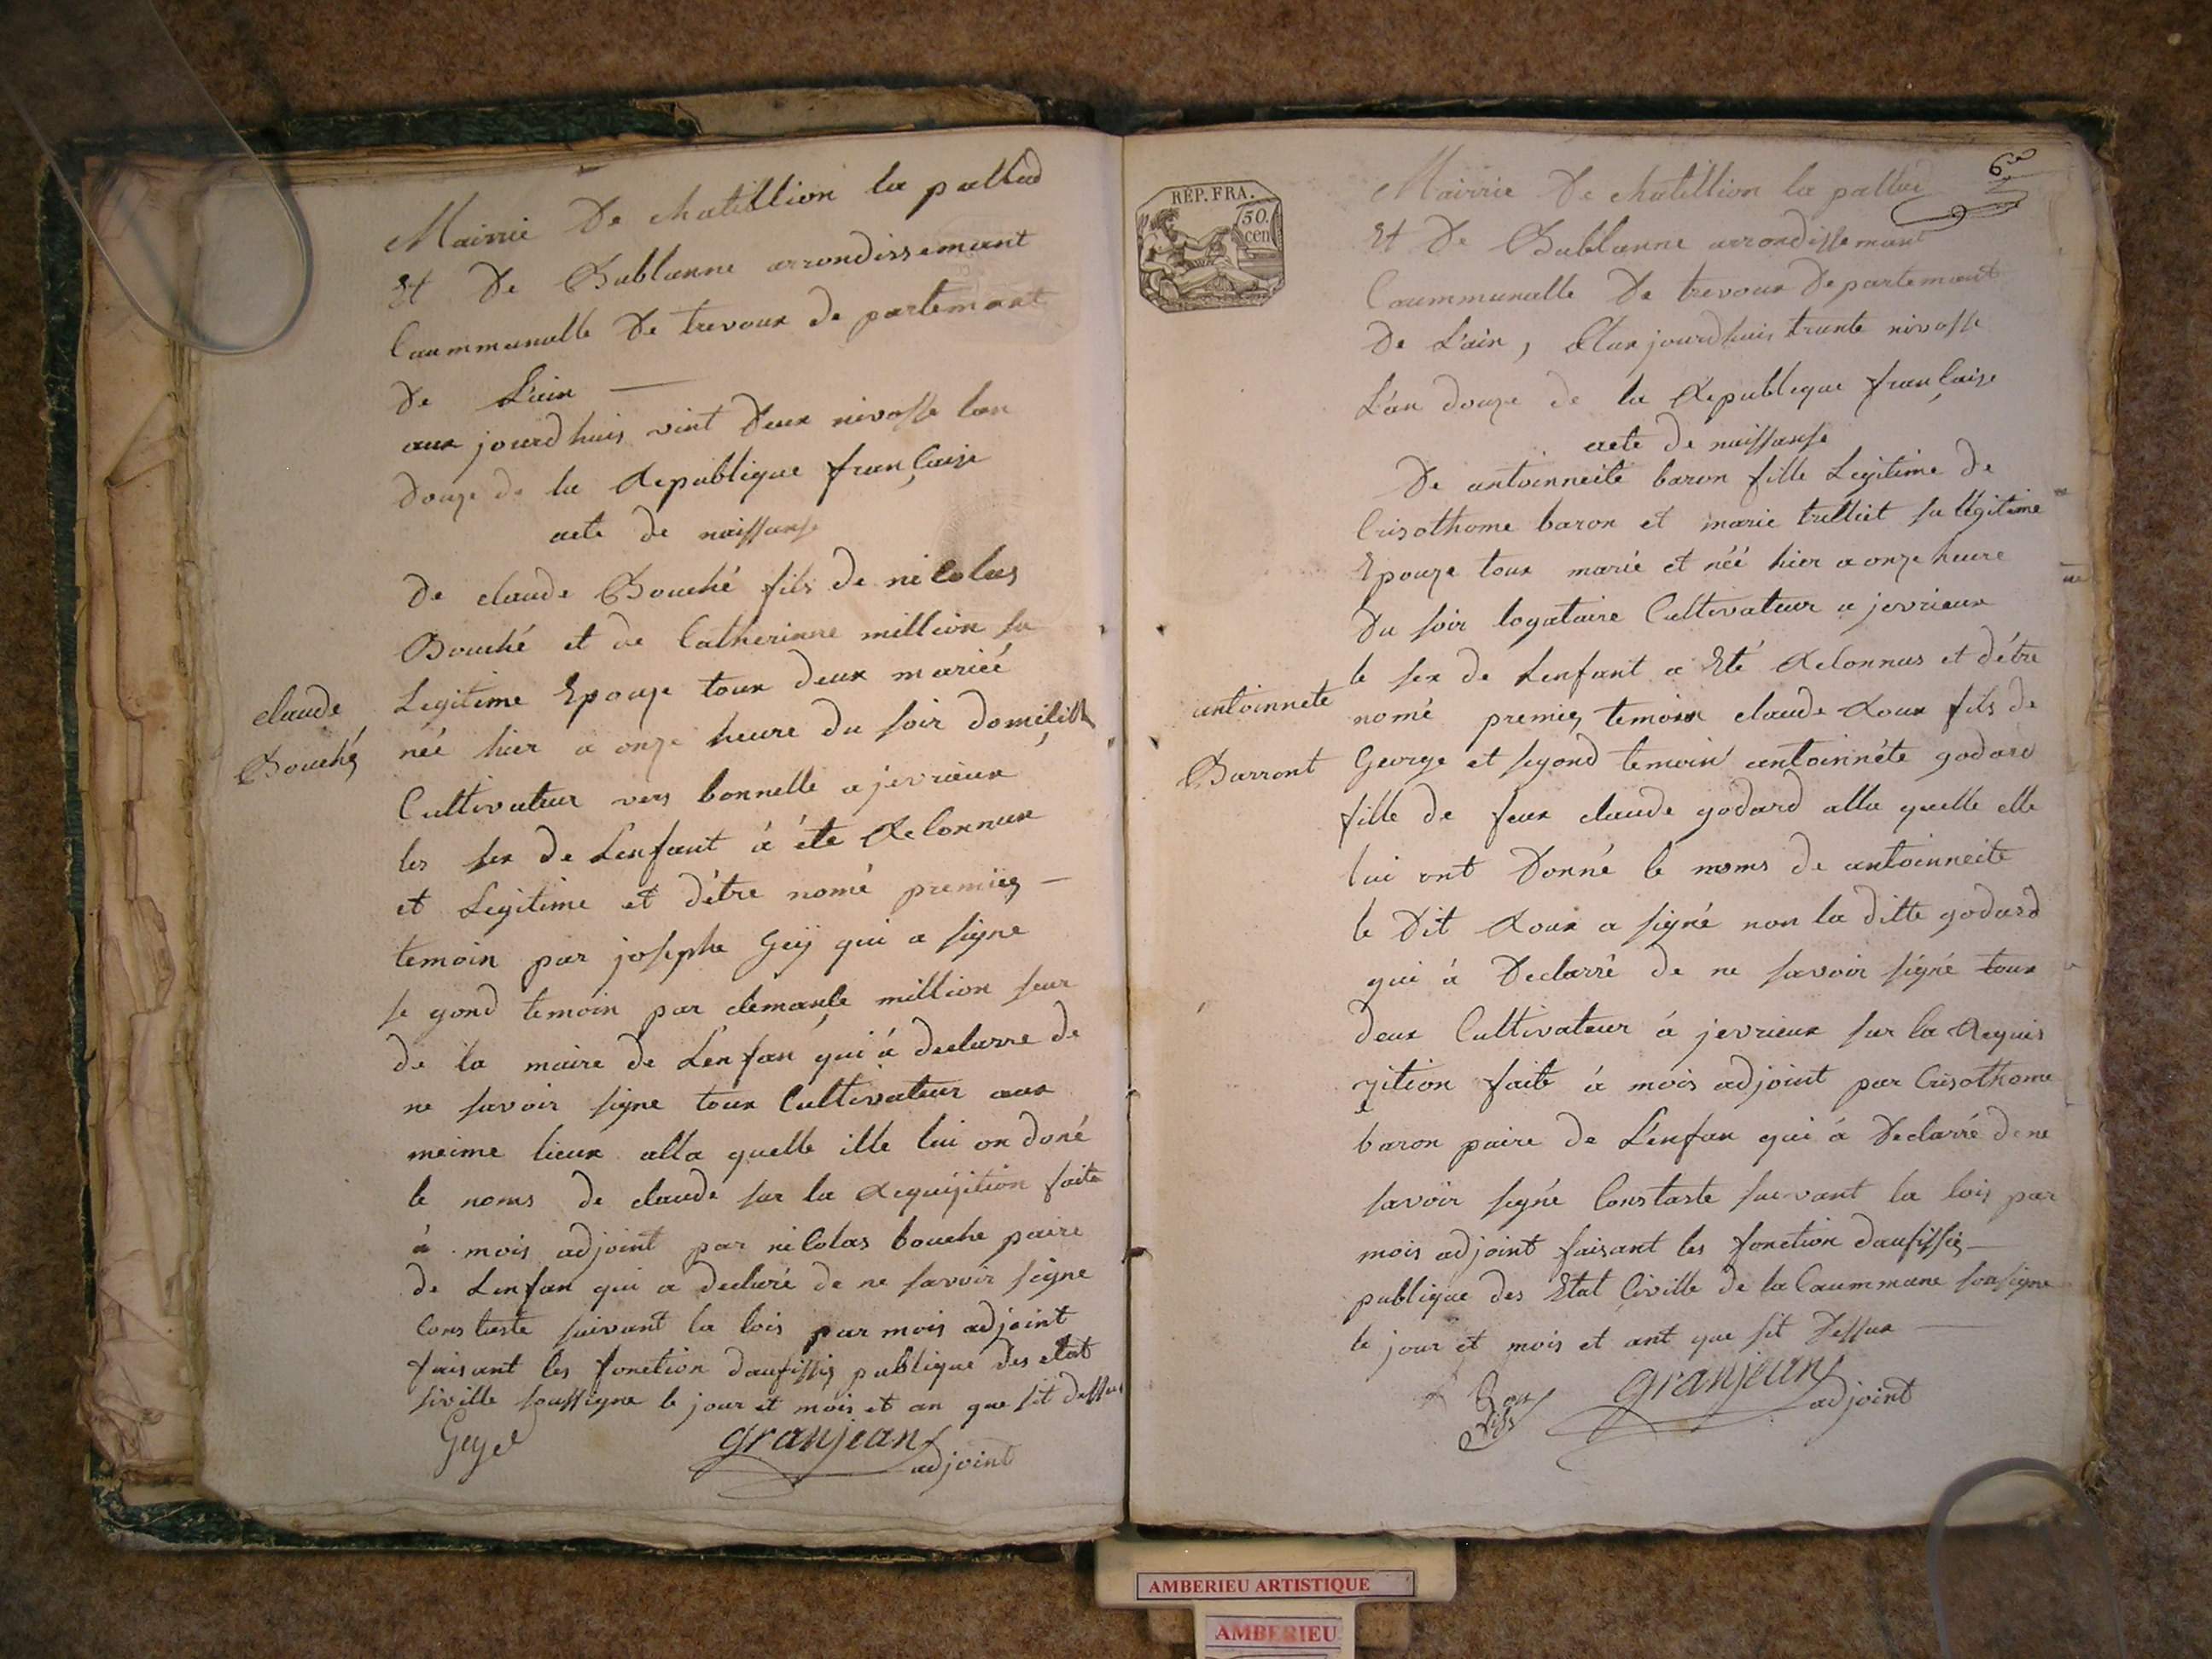 Mairrie De chatillion la pallud
Et De Bublanne arrondissemant
Caummunalle De trevoux de partemant
De L'ain —
aux jourdhuis vint Deux nivosse lan
Douze de la Republique française
acte de naissansse
De claude Bouché fils de nicolas
Bouché et de Catherinne million sa
Legitime Epouze toux deux mariéé
claude
Bouché
néé hier a onze heure du soir domicillié
Cultivateur vers bonnelle a jevrieux
les sex de Lenfant à éte Reconnux
et Legitime et d'être nomé premiés —
temoin par josepke Geÿ qui a signe
se gond temoin par clemançe million seur
de la maire de Lenfan qui à declarre de
ne savoir signe toux Cultivateur aux
meime lieux alla quelle ille lui on doné
le noms de claude sur la Requizition faite
à mois adjoint par nicolas bouche paire
de Lenfan qui a declaré de ne savoir signe
Constaste suivant la lois par mois adjoint
faisant les fonction daufissiés publique des etat
siville soussigne le jour et mois et an que sit dessus
Geÿ granjean
adjoint
RÉP. FRA.
50.
cen
6e
Mairrie De chatillion la pallud
Et De Bublanne arrondissemant
Caummunalle De trevoux Departemant
De L'ain, Aux jourdhuis trante nivosse
L'an douze de la Republique française
acte de naissansse
De antoinneite baron fille Legitime de
Crisothome baron et marie trelliet sa légitime
Epouze toux marié et néé hier a onze heure
Du soir logataire Cultivateur a jevrieux
le sex de Lenfant a Eté Reconnus et d'étre
antoinnete
Barront
nomé premiés temoin claude Roux fils de
George et segond temoin antoinnéte godard
fille de feux claude godard alla quelle elle
lui ont Donné le noms de antoinneite
le Dit Roux a signé non la ditte godard
qui à Declarré de ne savoir signé toux
deux Cultivateur à jevrieux sur la Requis
zition faite à mois adjoint par Crisothome
baron paire de L'enfan qui à Declarré de ne
savoir signé Constaste suivant la lois par
mois adjoint faisant les fonction daufissiés —
publique des Etat Civille de la Caummune sousigne
le jour et mois et ant que sit Dessux —
Roux granjean
fils adjoint
AMBERIEU ARTISTIQUE
AMBERIEU